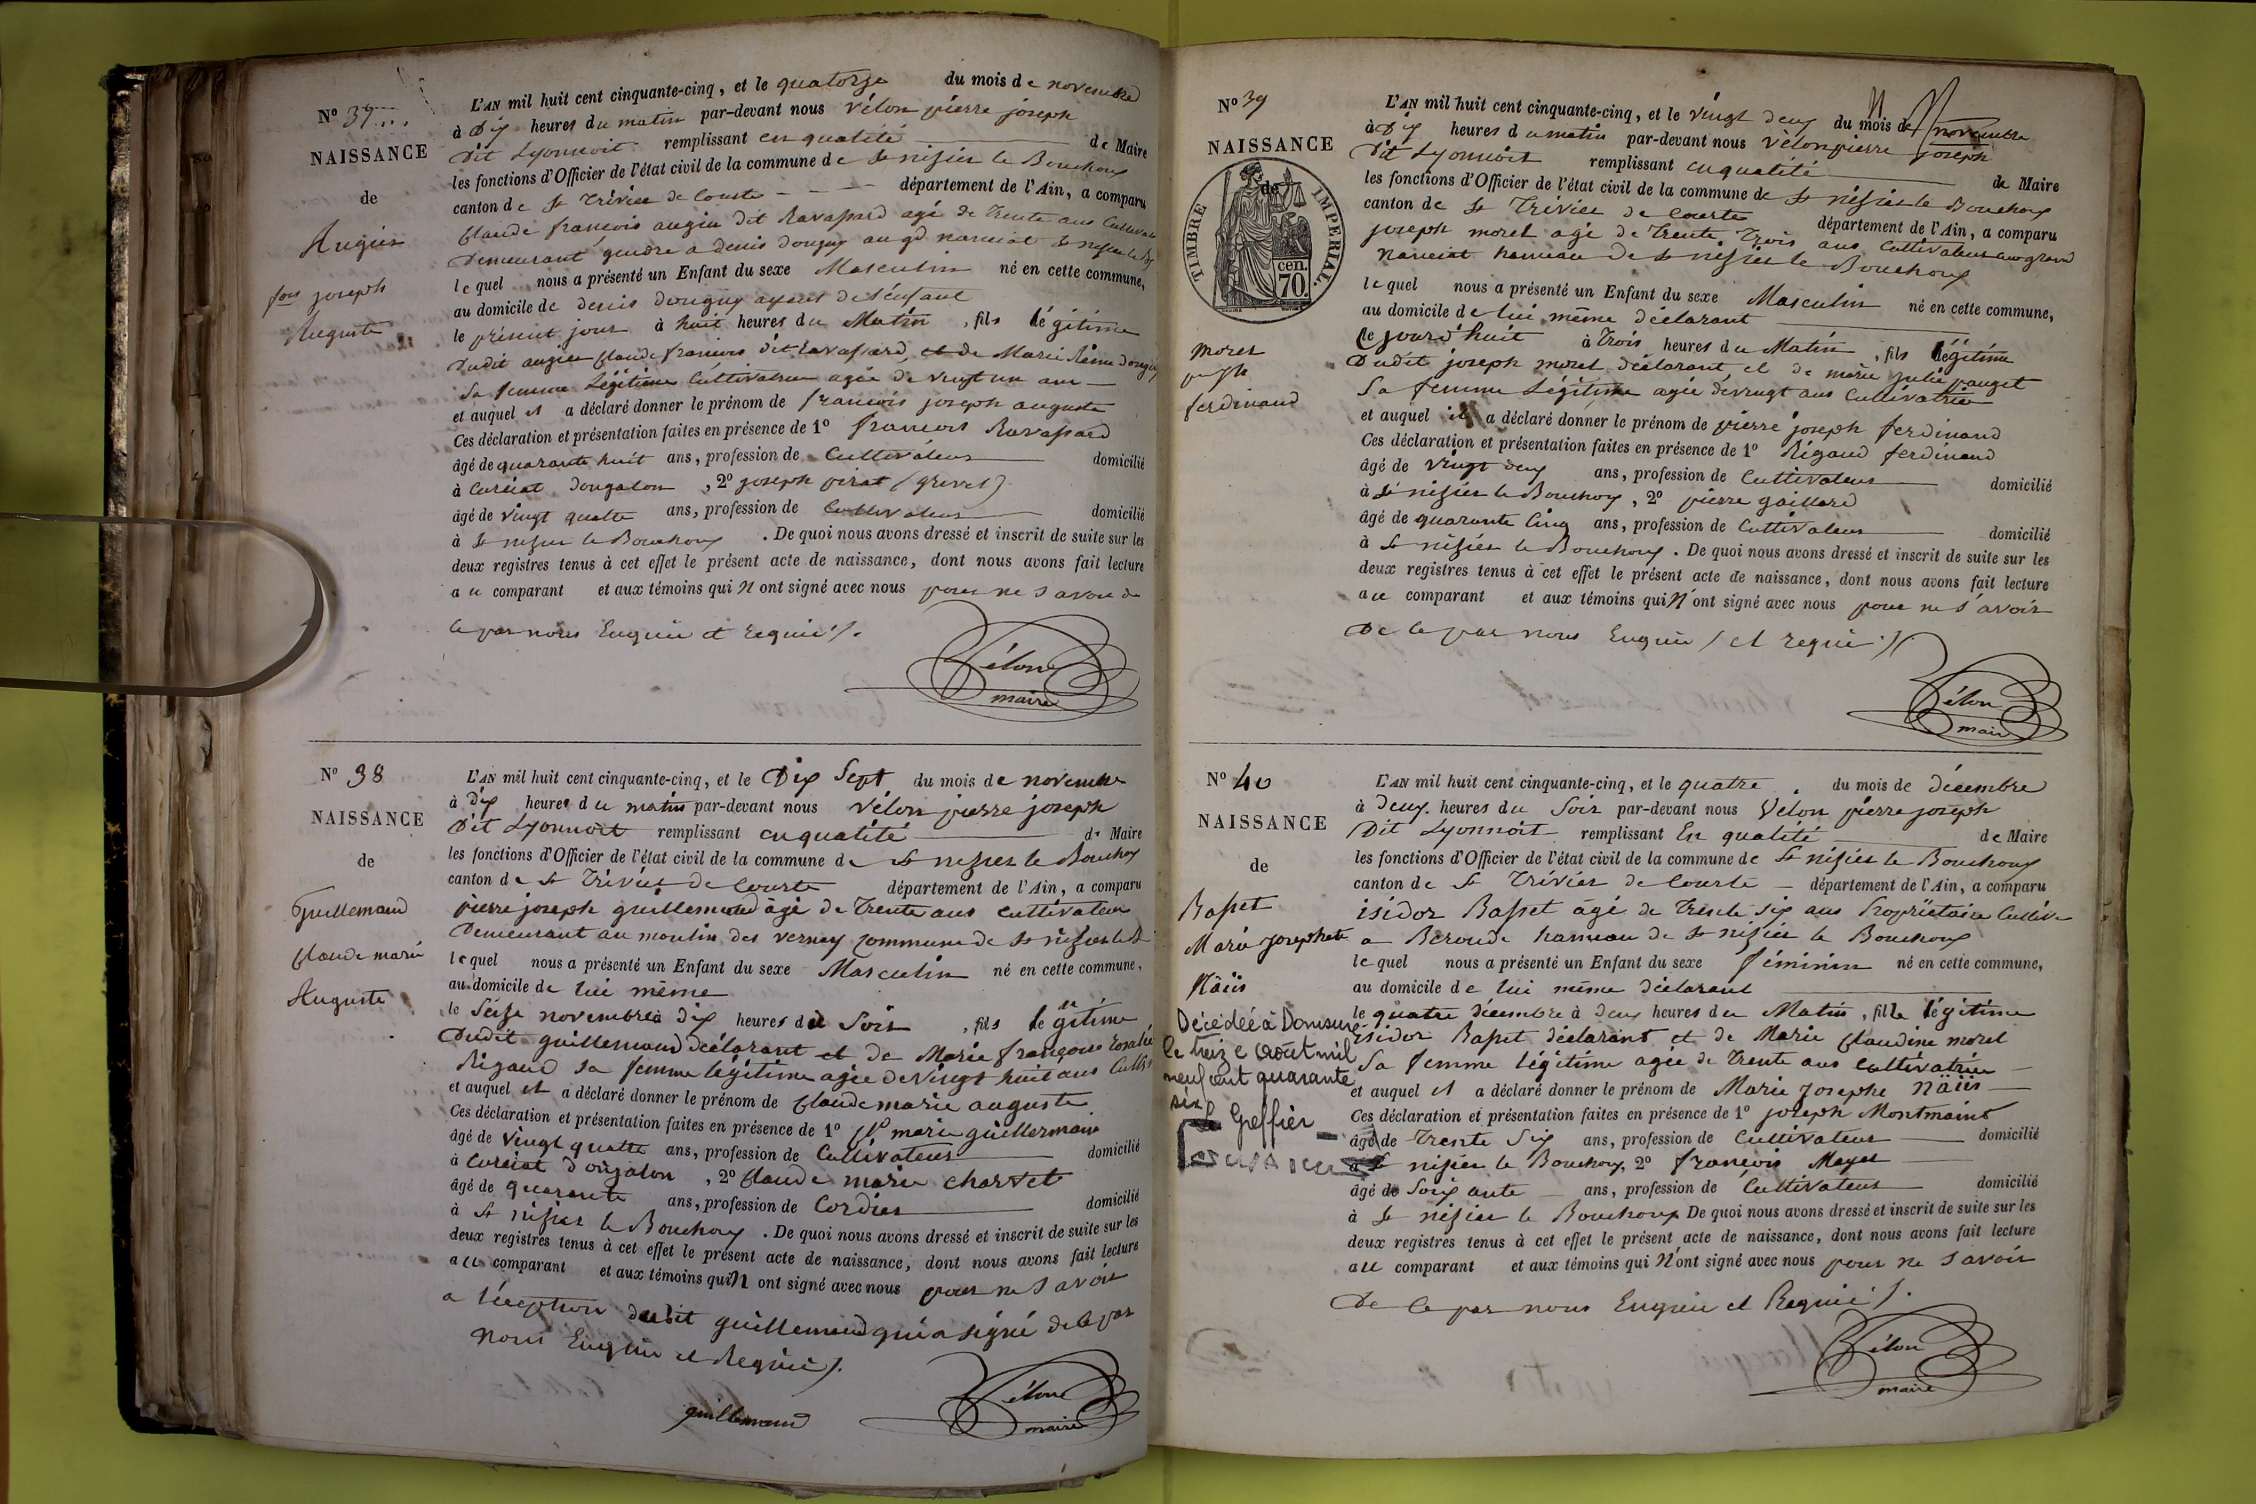 N° 37
NAISSANCE
de
Augier
fois joseph
Auguste
L'AN mil huit cent cinquante-cinq, et le quatorze du mois de novembre
à Dix heures du matin par-devant nous Vélon pierre joseph
Dit Lyonnoit remplissant en qualité de Maire
les fonctions d'Officier de l'état civil de la commune de St nizier le Bouchoux
canton de St Trivier de Courte département de l'Ain, a comparu
Claude françois augier dit Ravassard agé de Trente ans Cultivateur
Demeurant gendre a denis dougny au gd nanciat St nizier le
lequel nous a présenté un Enfant du sexe Masculin né en cette commune,
au domicile de denis dougny ayeul de l'enfant
le présent jour à huit heures du Matin, fils légitime
Dudit augier Claude françois dit Ravassard, et de Marie Reine dougny
Sa femme Légitime Cultivatrice agée de vingt un ans
et auquel il a déclaré donner le prénom de françois joseph auguste
Ces déclaration et présentation faites en présence de 1° françois Ravassard
âgé de quarante huit ans, profession de Cultivateur domicilié
à Curciat dongalon, 2° joseph pirat (grevet)
âgé de vingt quatre ans, profession de Cultivateur domicilié
à St nizier le Bouchoux. De quoi nous avons dressé et inscrit de suite sur les
deux registres tenus à cet effet le présent acte de naissance, dont nous avons fait lecture
au comparant et aux témoins qui n'ont signé avec nous pour ne savoir de
ce par nous Enquis et requis ./.
Vélon
maire
N° 38
NAISSANCE
de
Guillemaud
Claude marie
Auguste
L'AN mil huit cent cinquante-cinq, et le Dix Sept du mois de novembre
à dix heures du matin par-devant nous Vélon pierre joseph
Dit Lyonnoit remplissant en qualité de Maire
les fonctions d'Officier de l'état civil de la commune de St nizier le Bouchoux
canton de St Trivier de Courte département de l'Ain, a comparu
pierre joseph guillemaud âgé de Trente ans cultivateur
Demeurant au moulin des verney commune de St nizier le B
lequel nous a présenté un Enfant du sexe Masculin né en cette commune,
au domicile de lui même
le Seize novembre à dix heures du Soir, fils légitime
Dudit guillemaud déclarant et de Marie françoise Rosalie
Rigaud sa femme légitime agée de Vingt huit ans
et auquel il a déclaré donner le prénom de Claude marie auguste
Ces déclaration et présentation faites en présence de 1° Cl marie guillermain
âgé de vingt quatre ans, profession de Cultivateur domicilié
à Curciat dongalon, 2° Claude marie charvet
âgé de quarante ans, profession de Cordier domicilié
à St nizier le Bouchoux. De quoi nous avons dressé et inscrit de suite sur les
deux registres tenus à cet effet le présent acte de naissance, dont nous avons fait lecture
au comparant et aux témoins qui n'ont signé avec nous pour ne savoir
a l'éception dudit guillemaud qui a signé de ce par
nous Enquis et Requis ./.
guillemaud
Vélon
maire
N° 39
NAISSANCE
de
TIMBRE IMPERIAL.
70 cen.
moret
ferdinand
L'AN mil huit cent cinquante-cinq, et le vingt deux du mois de novembre
à Dix heures du matin par-devant nous Vélon pierre joseph
Dit Lyonnoit remplissant en qualité de Maire
les fonctions d'Officier de l'état civil de la commune de St nizier le Bouchoux
canton de St Trivier de Courte département de l'Ain, a comparu
joseph moret agé de trente trois ans Cultivateur au grand
Nanciat hameau de St nizier le Bouchoux
lequel nous a présenté un Enfant du sexe Masculin né en cette commune,
au domicile de lui même déclarant
le jourd'huit à Trois heures du Matin, fils légitime
Dudit joseph moret déclarant, et de marie julie pauget
Sa femme Légitime agée de vingt ans Cultivatrice
et auquel il a déclaré donner le prénom de pierre joseph ferdinand
Ces déclaration et présentation faites en présence de 1° Rigaud ferdinand
âgé de vingt deux ans, profession de Cultivateur domicilié
à St nizier le Bouchoux, 2° pierre gaillard
âgé de quarante Cinq ans, profession de Cultivateur domicilié
à St nizier le Bouchoux. De quoi nous avons dressé et inscrit de suite sur les
deux registres tenus à cet effet le présent acte de naissance, dont nous avons fait lecture
au comparant et aux témoins qui n'ont signé avec nous pour ne s'avoir
De ce par nous Enquis / et requis ./.
Vélon
maire
N° 40
NAISSANCE
de
Basset
Marie Josephete
Näiis
Décédée à Domsure
le treize août mil
neuf cent quarante
six
Le Greffier
L'AN mil huit cent cinquante-cinq, et le quatre du mois de décembre
à Deux heures du Soir par-devant nous Vélon pierre joseph
Dit Lyonnoit remplissant En qualité de Maire
les fonctions d'Officier de l'état civil de la commune de St nizier le Bouchoux
canton de St Trivier de Courte département de l'Ain, a comparu
isidor Basset âgé de trente six ans Propriétaire Cultiv
a Beroude hameau de St nizier le Bouchoux
lequel nous a présenté un Enfant du sexe féminin né en cette commune,
au domicile de lui même déclarant
le quatre décembre à deux heures du Matin, fille légitime
isidor Basset déclarant et de Marie Claudine moret
Sa femme légitime agée de Trente ans cultivatrice
et auquel il a déclaré donner le prénom de Marie Josephe Näiis
Ces déclaration et présentation faites en présence de 1° joseph Montmaint
âgé de Trente Six ans, profession de Cultivateur domicilié
à St nizier le Bouchoux, 2° françois Mayet
âgé de Soixante ans, profession de Cultivateur domicilié
à St nizier le Bouchoux De quoi nous avons dressé et inscrit de suite sur les
deux registres tenus à cet effet le présent acte de naissance, dont nous avons fait lecture
au comparant et aux témoins qui n'ont signé avec nous pour ne savoir
De ce par nous Enquis et Requis ./.
Vélon
maire